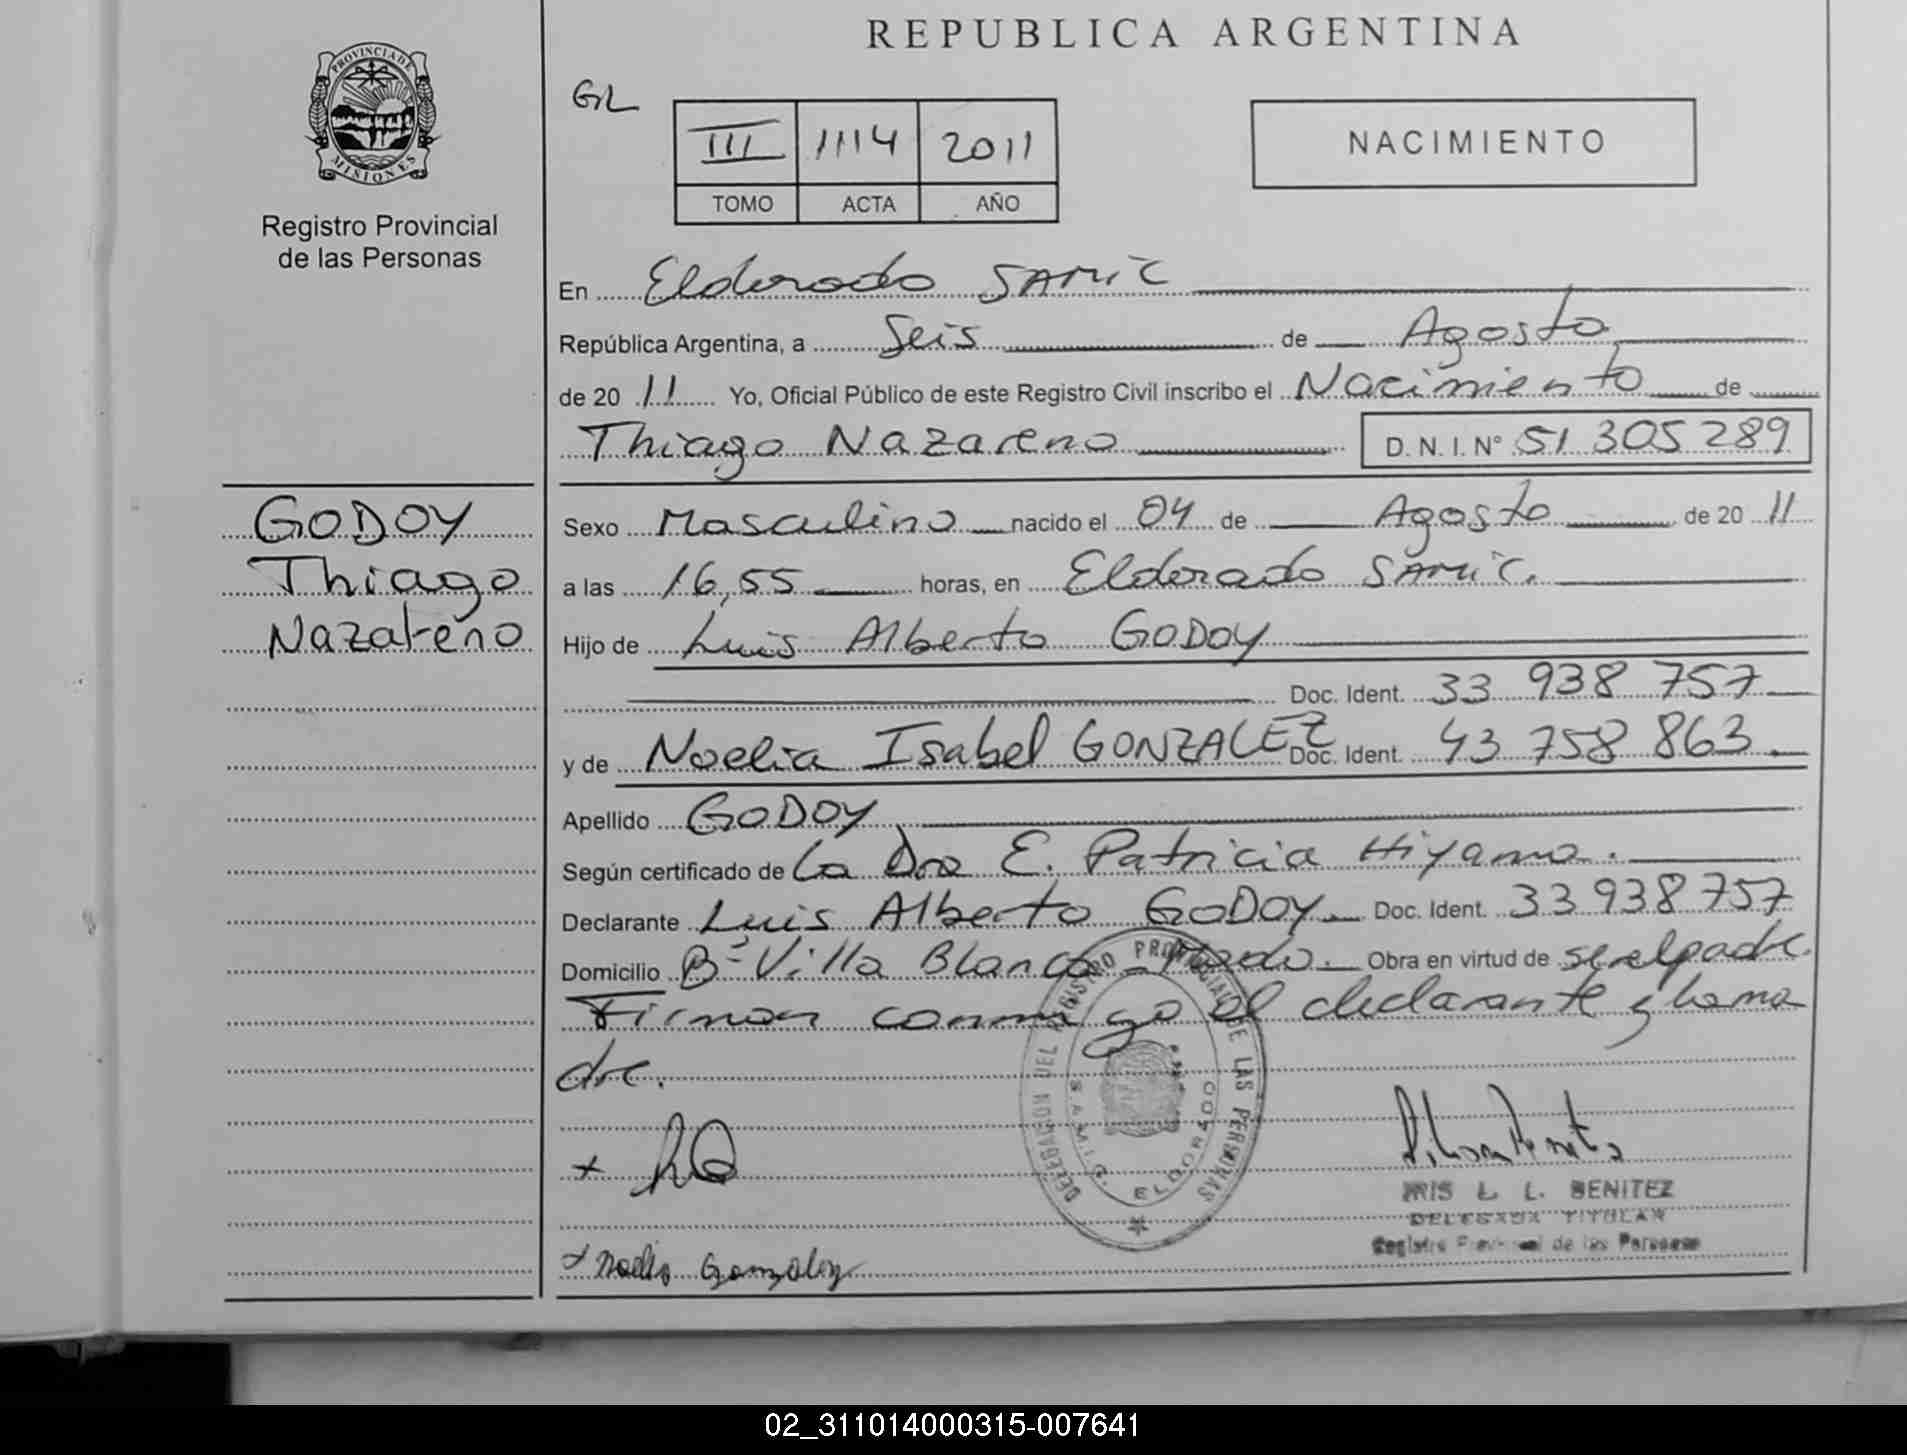 REPUBLICA ARGENTINA
PROVINCIA DE MISIONES
Registro Provincial
de las Personas
GL
III 1114 2011
TOMO ACTA AÑO
NACIMIENTO
En Eldorado SAMIC
República Argentina, a Seis de Agosto
de 2011 Yo, Oficial Público de este Registro Civil inscribo el Nacimiento de
Thiago Nazareno D. N. I. N° 51 305 289
GODOY
Thiago
Nazareno
Sexo Masculino nacido el 04 de Agosto de 2011
a las 16,55 horas, en Eldorado SAMIC.
Hijo de Luis Alberto GODOY
Doc. Ident. 33 938 757
y de Noelia Isabel GONZALEZ Doc. Ident. 43 758 863
Apellido GODOY
Según certificado de La Dra E. Patricia Hiyama.
Declarante Luis Alberto GODOY Doc. Ident. 33 938 757
Domicilio B° Villa Blanca Obra en virtud de ser el padre.
Firman conmigo el declarante y la ma
dre.
DELEGACION DEL REGISTRO PROVINCIAL DE LAS PERSONAS
S.A.M.I.C. ELDORADO
+
+ Noelia Gonzalez
IRIS L. L. BENITEZ
DELEGADA TITULAR
Registro Provincial de las Personas
02_311014000315-007641